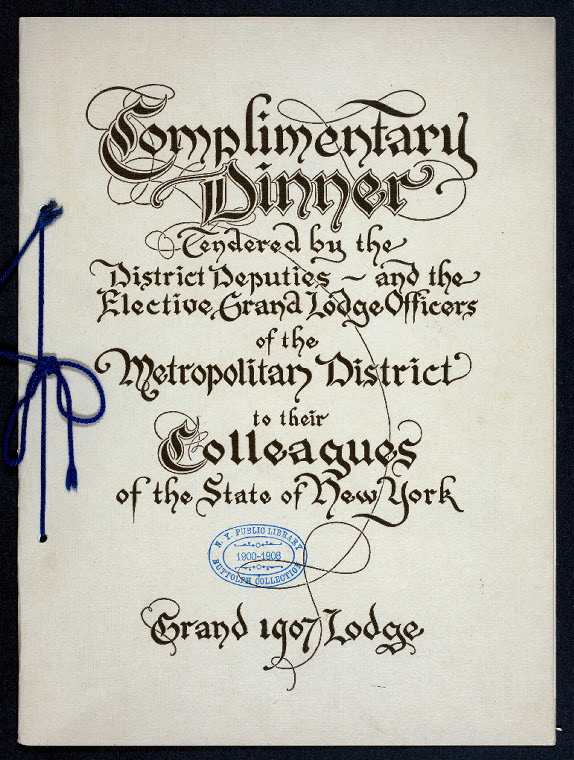 Complimentary
Dinner
Tendered by the
District Deputies ~ and the
Elective Grand Lodge Officers
of the
Metropolitan District
to their
Colleagues
of the State of New York
N. Y. PUBLIC LIBRARY
1900-1908
BUTTOLPH COLLECTION
Grand 1907 Lodge